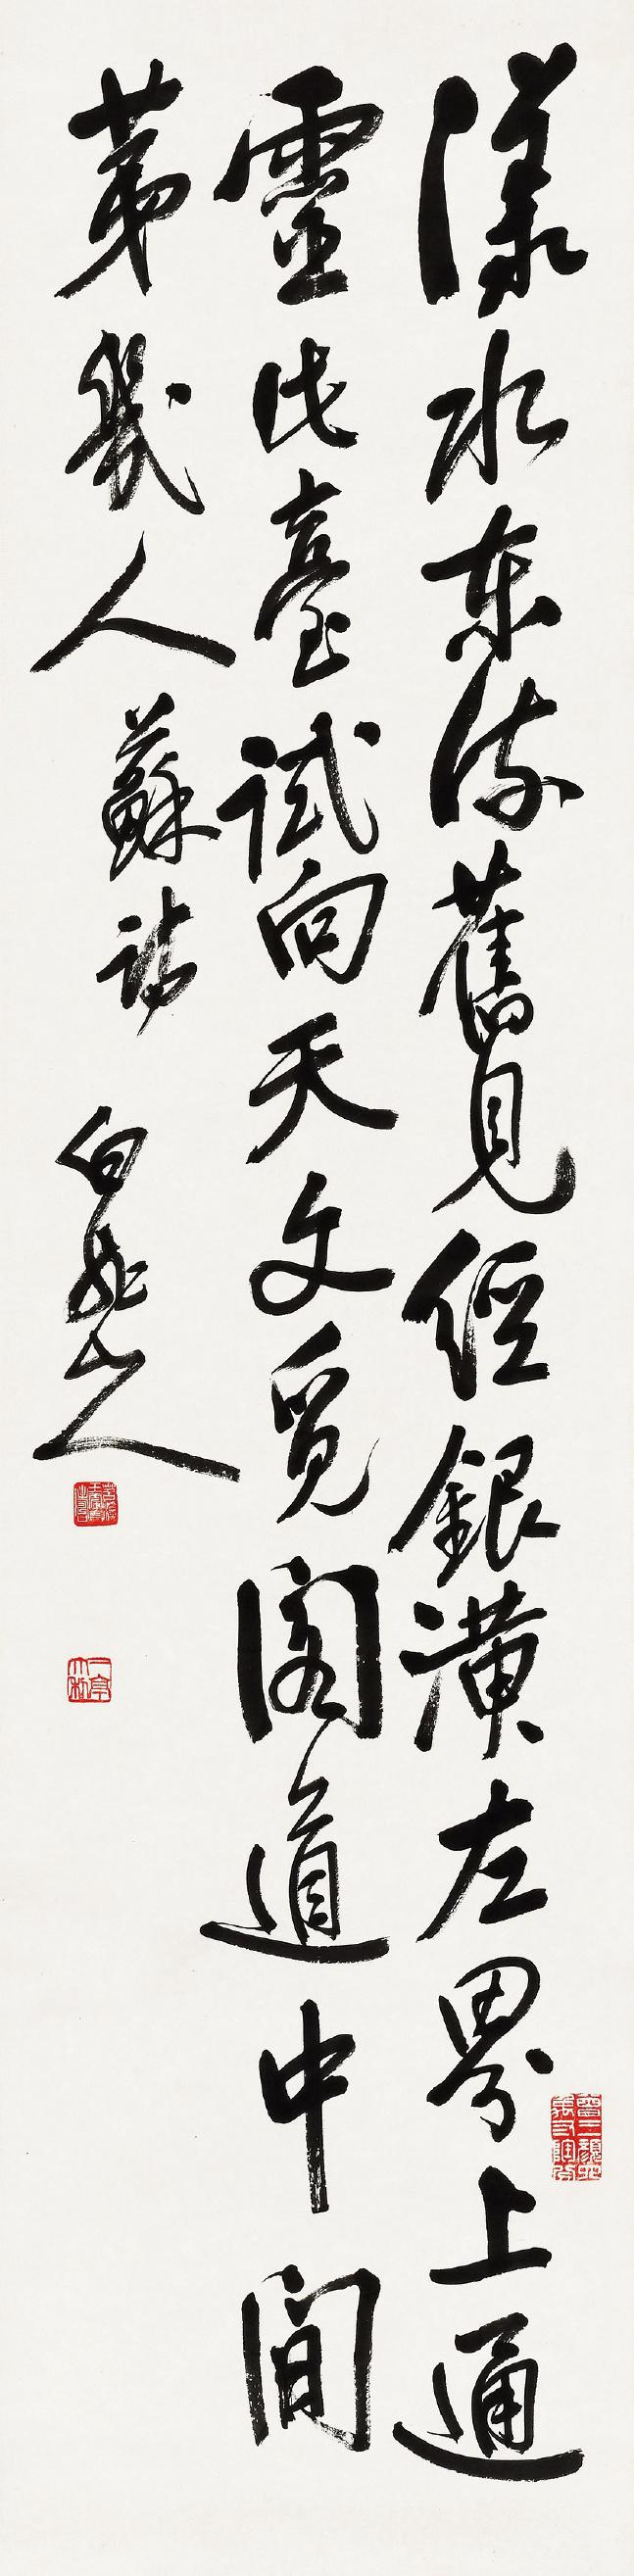 漾水東流舊見經銀潢左界上通
靈此臺試向天文覓閣道中間
第幾人 蘇詩 白龍山人